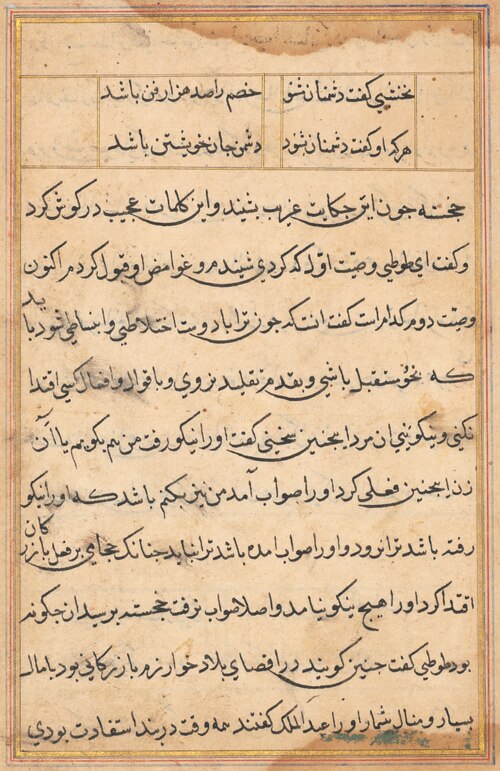 نخشبی گفت دشمنان شنو خصم را صد هزار فن باشد
هر که او گفت دشمنان شنود دشمن جان خویشتن باشد
خجسته جون این حکایت غریب بشنید و این کلمات عجیب در گوش کرد
و گفت ای طوطی وصیت اول که کردی شنیدم و غوامض او قبول کردم اکنون
وصیت دوم کدام است گفت انست که جون ترا با دوست اختلاطی و انبساطی شود باید
که بخود مستقبل باشی و بقدم تقلید نروی و باقوال و افعال کسی اقتدا
نکنی و نیکو نبینی ان مرد اینجنین سخنی گفت او را نیکو رفت من هم بکویم یا آن
زن اینجنین فعلی کرد او را صواب آمد من نیز بکنم باشد که او را نیکو
رفته باشد ترا نرود و او را صواب امده باشد ترا نیاید جنانک حجامی بر فعل بازرکان
اقتدا کرد او را هیج نیکو نیامد و اصلا صواب نرفت خجسته برسید ان جکونه
بود طوطی گفت جنین کویند در اقصای بلاد خوارزم بازرکانی بود با مال
بسیار و منال شمار او را عبد الملک گفتند همه وقت در بند استفادت بودی